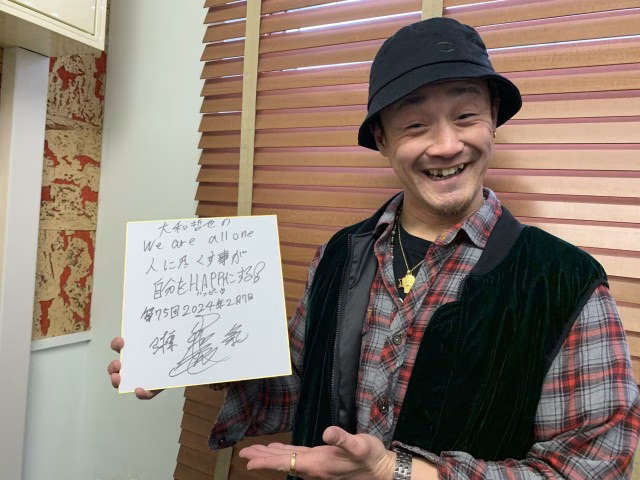 大和哲也の
We are all one
人に尽くす事が
自分をHAPPYにする8
ハッピー
第75回 2024年2月7日